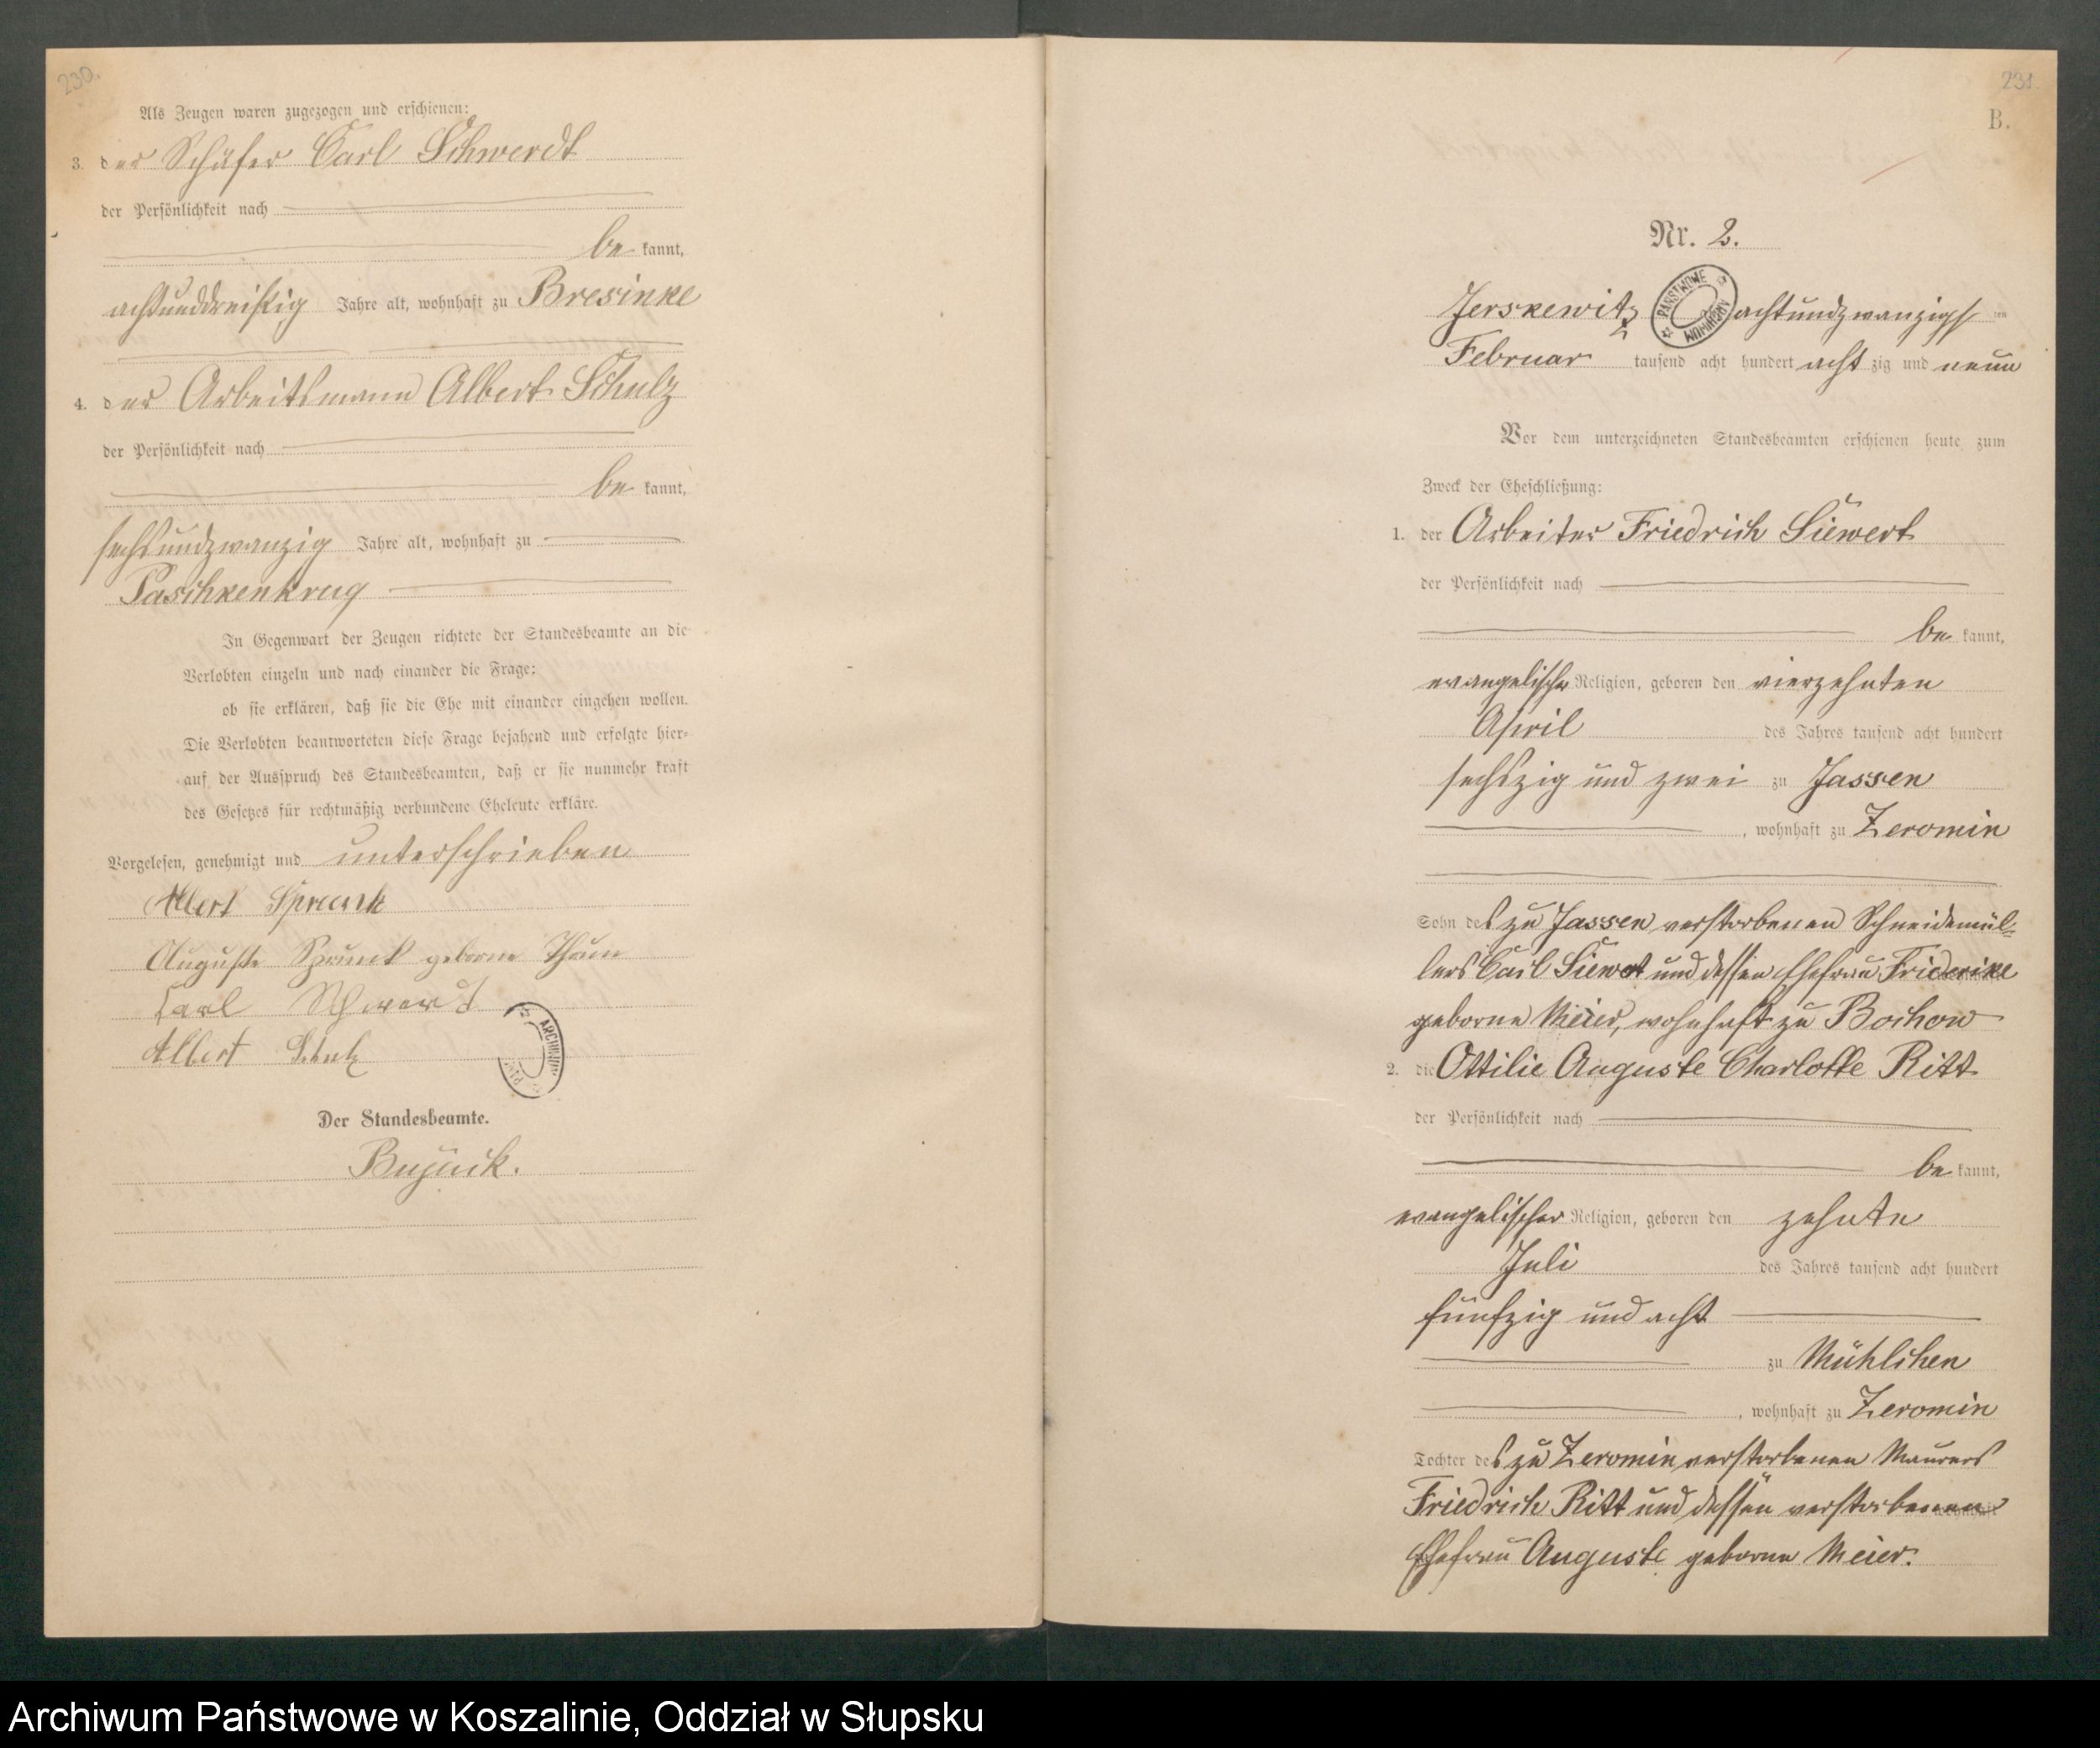 230.
Als Zeugen waren zugezogen und erschienen:
3. der Schäfer Carl Schwerdt
der Persönlichkeit nach
be kannt,
achtunddreißig Jahre alt, wohnhaft zu Bresinke
4. der Arbeitsmann Albert Schulz
der Persönlichkeit nach
be kannt,
sechsundzwanzig Jahre alt, wohnhaft zu
Paschkenkrug
In Gegenwart der Zeugen richtete der Standesbeamte an die
Verlobten einzeln und nach einander die Frage:
ob sie erklären, daß sie die Ehe mit einander eingehen wollen.
Die Verlobten beantworteten diese Frage bejahend und erfolgte hier-
auf der Ausspruch des Standesbeamten, daß er sie nunmehr kraft
des Gesetzes für rechtmäßig verbundene Eheleute erkläre.
Vorgelesen, genehmigt und unterschrieben
Albert Sprunk
Auguste Sprunck geborne Thun
Carl Schwerdt
Albert Schulz
ARCHIWUM
Der Standesbeamte.
Bujack.
231.
B.
Nr. 2.
PAŃSTWOWE ARCHIWUM
Jerskewitz achtundzwanzigsten
Februar tausend acht hundert acht zig und neun
Vor dem unterzeichneten Standesbeamten erschienen heute zum
Zweck der Eheschließung:
1. der Arbeiter Friedrich Siewert
der Persönlichkeit nach
be kannt,
evangelischer Religion, geboren den vierzehnten
April des Jahres tausend acht hundert
sechszig und zwei zu Jassen
, wohnhaft zu Zeromin
Sohn des zu Jassen verstorbenen Schneidemül-
lers Carl Siewert und dessen Ehefrau Friederike
geborne Meier, wohnhaft zu Bochow
2. die Ottilie Auguste Charlotte Ritt
der Persönlichkeit nach
be kannt,
evangelischer Religion, geboren den zehnten
Juli des Jahres tausend acht hundert
fünfzig und acht
zu Mühlchen
, wohnhaft zu Zeromin
Tochter des zu Zeromin verstorbenen Maurers
Friedrich Ritt und dessen verstorbenen
Ehefrau Auguste geborne Meier.
Archiwum Państwowe w Koszalinie, Oddział w Słupsku